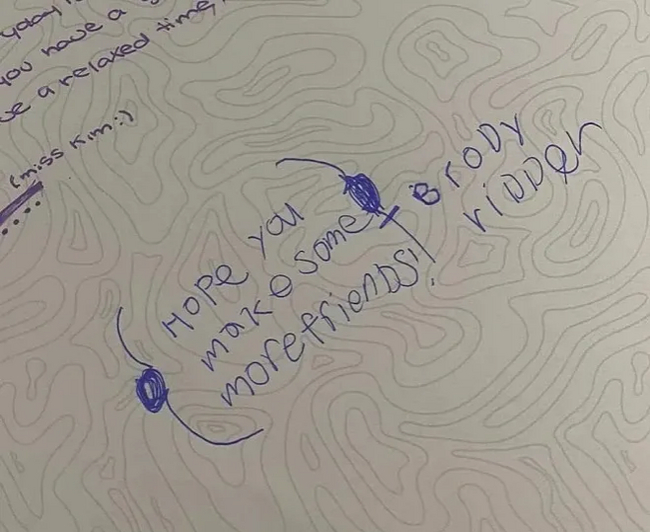 you have a
ve a relaxed time,
(miss Kim:)
Hope you
make some
more friends!
- Brody
ridder